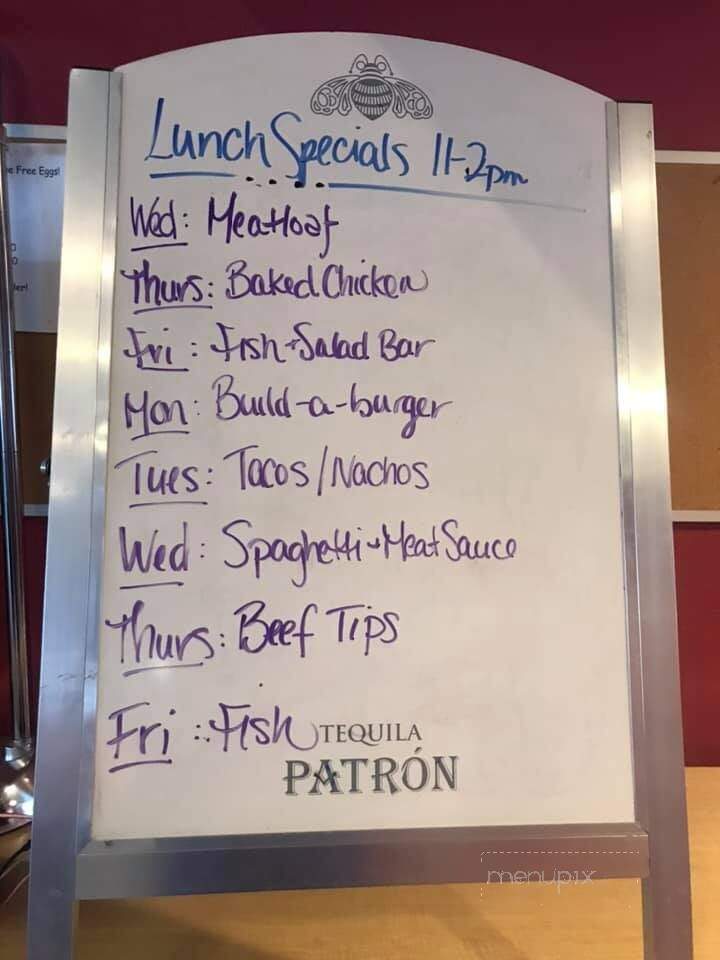 Lunch Specials 11-2pm
Wed: Meatloaf
Thurs: Baked Chicken
Fri: Fish + Salad Bar
Mon: Build-a-burger
Tues: Tacos/Nachos
Wed: Spaghetti + Meat Sauce
Thurs: Beef Tips
Fri: Fish
TEQUILA
PATRÓN
e Free Eggs!
menupix